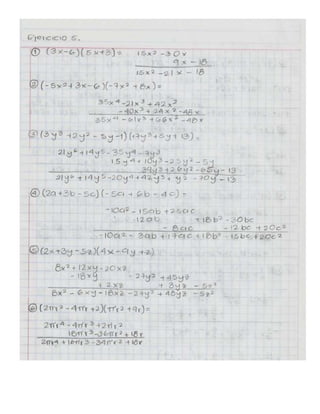 Ejercicio 5.
① (3x-6)(5x+3)= 15x² -30x
9x - 18
15x² -21x - 18
② (-5x²+3x-6)(-7x²+8x)=
35x⁴ -21x³ +42x²
-40x³ +24x² -48x
35x⁴ -61x³ +66x² -48x
③ (3y³+2y²-5y-1)(+7y³+5y+13)=
21y⁶ +14y⁵ -35y⁴ -7y³
15y⁴ +10y³ -25y² -5y
39y³ +26y² -65y -13
④ (2a+3b-5c)(-5a+6b-4c)=
-10a² -15ab +25ac
12ab +18b² -30bc
- 8ac -12bc +20c²
-10a² -3ab +17ac +18b²
⑤ (2x+3y-5z)(4x-9y+z)=
8x² +12xy -20xz
-18xy -27y² +45yz
+2xz +3yz -5z²
8x² -6xy -18xz -27y² +48yz -5z²
⑥ (2πr² -4πr +2)(πr² +9r)=